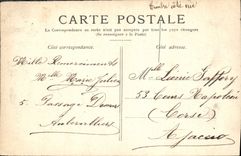 timbre ôté vu
CARTE POSTALE
La Correspondance au recto n'est pas acceptée par tous les pays étrangers
(Se renseigner à la Poste)
Côté correspondance. Côté adresse.
Mille Remerciements
Mlle Marie Julien
5. Passage Doua
Aubervilliers
Mlle Lucie Gaffory
53 Cours Napoléon
(Corse)
Ajaccio